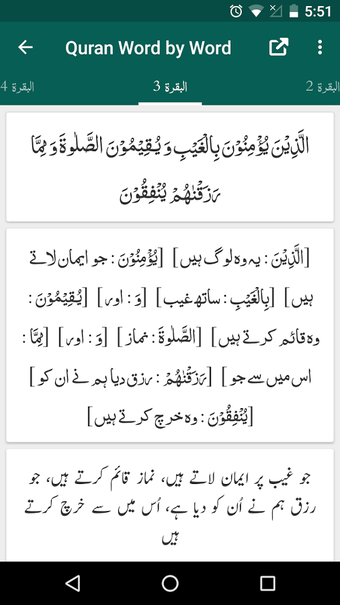 5:51
Quran Word by Word
البقرة 4 البقرة 3 البقرة 2
الَّذِیْنَ یُؤْمِنُوْنَ بِالْغَیْبِ وَ یُقِیْمُوْنَ الصَّلٰوةَ وَ مِمَّا
رَزَقْنٰهُمْ یُنْفِقُوْنَ
[الَّذِیْنَ : یہ وہ لوگ ہیں] [یُؤْمِنُوْنَ : جو ایمان لاتے
ہیں] [بِالْغَیْبِ : ساتھ غیب] [وَ : اور] [یُقِیْمُوْنَ :
وہ قائم کرتے ہیں] [الصَّلٰوةَ : نماز] [وَ : اور] [مِمَّا :
اس میں سے جو] [رَزَقْنٰهُمْ : رزق دیا ہم نے ان کو]
[یُنْفِقُوْنَ : وہ خرچ کرتے ہیں]
جو غیب پر ایمان لاتے ہیں، نماز قائم کرتے ہیں، جو
رزق ہم نے اُن کو دیا ہے، اُس میں سے خرچ کرتے
ہیں